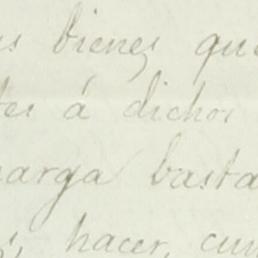 s bienes que
tes á dichos
arga basta
s, hacer, cum